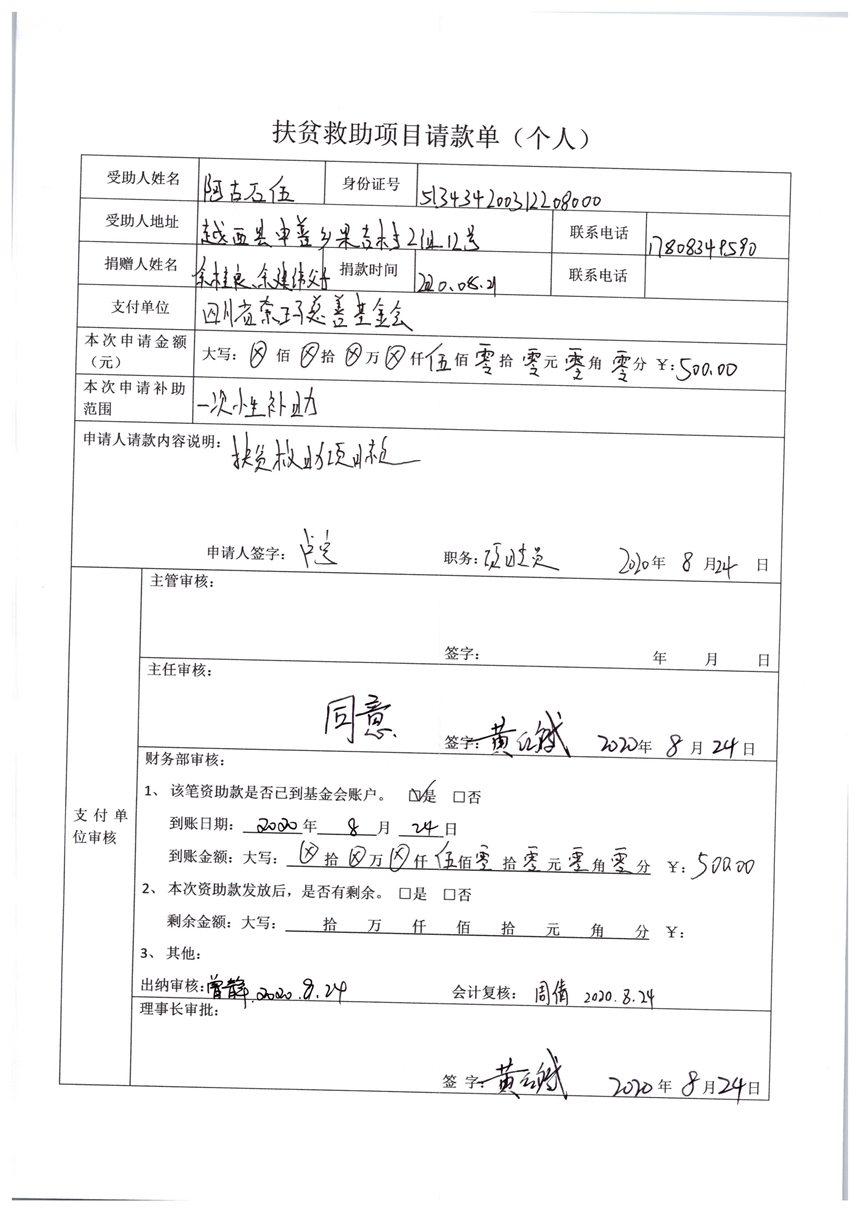 扶贫救助项目请款单（个人）
受助人姓名 阿古石伍 身份证号 513434200312208000
受助人地址 越西县申普乡果吉村2组12号 联系电话 17808349590
捐赠人姓名 余桂良、余建伟父子 捐款时间 2020.08.21 联系电话
支付单位 四川省索玛慈善基金会
本次申请金额（元） 大写：ⓧ佰ⓧ拾ⓧ万ⓧ仟伍佰零拾零元零角零分 ￥：500.00
本次申请补助范围 一次性补助
申请人请款内容说明：扶贫救助项目
申请人签字： 职务： 2020年8月24日
支付单位审核
主管审核：
签字： 年 月 日
主任审核：
同意
签字：黄红斌 2020年8月24日
财务部审核：
1、 该笔资助款是否已到基金会账户。 ☑是 □否
到账日期：2020年8月24日
到账金额：大写：ⓧ拾ⓧ万ⓧ仟伍佰零拾零元零角零分 ￥：500.00
2、 本次资助款发放后，是否有剩余。 □是 □否
剩余金额：大写： 拾 万 仟 佰 拾 元 角 分 ￥：
3、 其他：
出纳审核：曾静 2020.8.24 会计复核：周倩 2020.8.24
理事长审批：
签 字：黄红斌 2020年8月24日